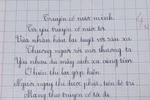 Truyện cổ nước mình
Tôi yêu truyện cổ nước tôi
Vừa nhân hậu lại tuyệt vời sâu xa
Thương người rồi mới thương ta
Yêu nhau dù mấy cách xa cũng tìm
Ở hiền thì lại gặp hiền
Người ngay thì được phật, tiên độ trì
Mang theo truyện cổ tôi đi